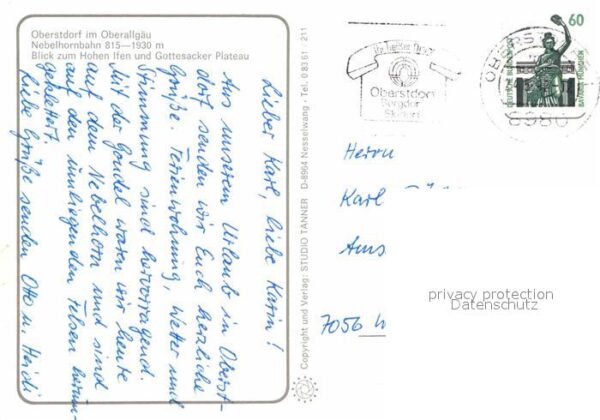 Oberstdorf im Oberallgäu
Nebelhornbahn 815—1930 m
Blick zum Hohen Ifen und Gottesacker Plateau
Lieber Karl, liebe Karin!
Aus unserem Urlaub in Oberst-
dorf senden wir Euch herzliche
Grüße. Ferienwohnung, Wetter und
Stimmung sind hervorragend.
Mit der Gondel waren wir heute
auf dem Nebelhorn und sind
auf den umliegenden Felsen herum-
geklettert.
Liebe Grüße senden Otto u. Heidi
Copyright und Verlag: STUDIO TANNER D-8964 Nesselwang · Tel. 0 83 61 / 211
Oberstdorf
Bergdorf
8980
60
DEUTSCHE BUNDESPOST
BAVARIA MÜNCHEN
Herrn
Karl
7056
privacy protection
Datenschutz